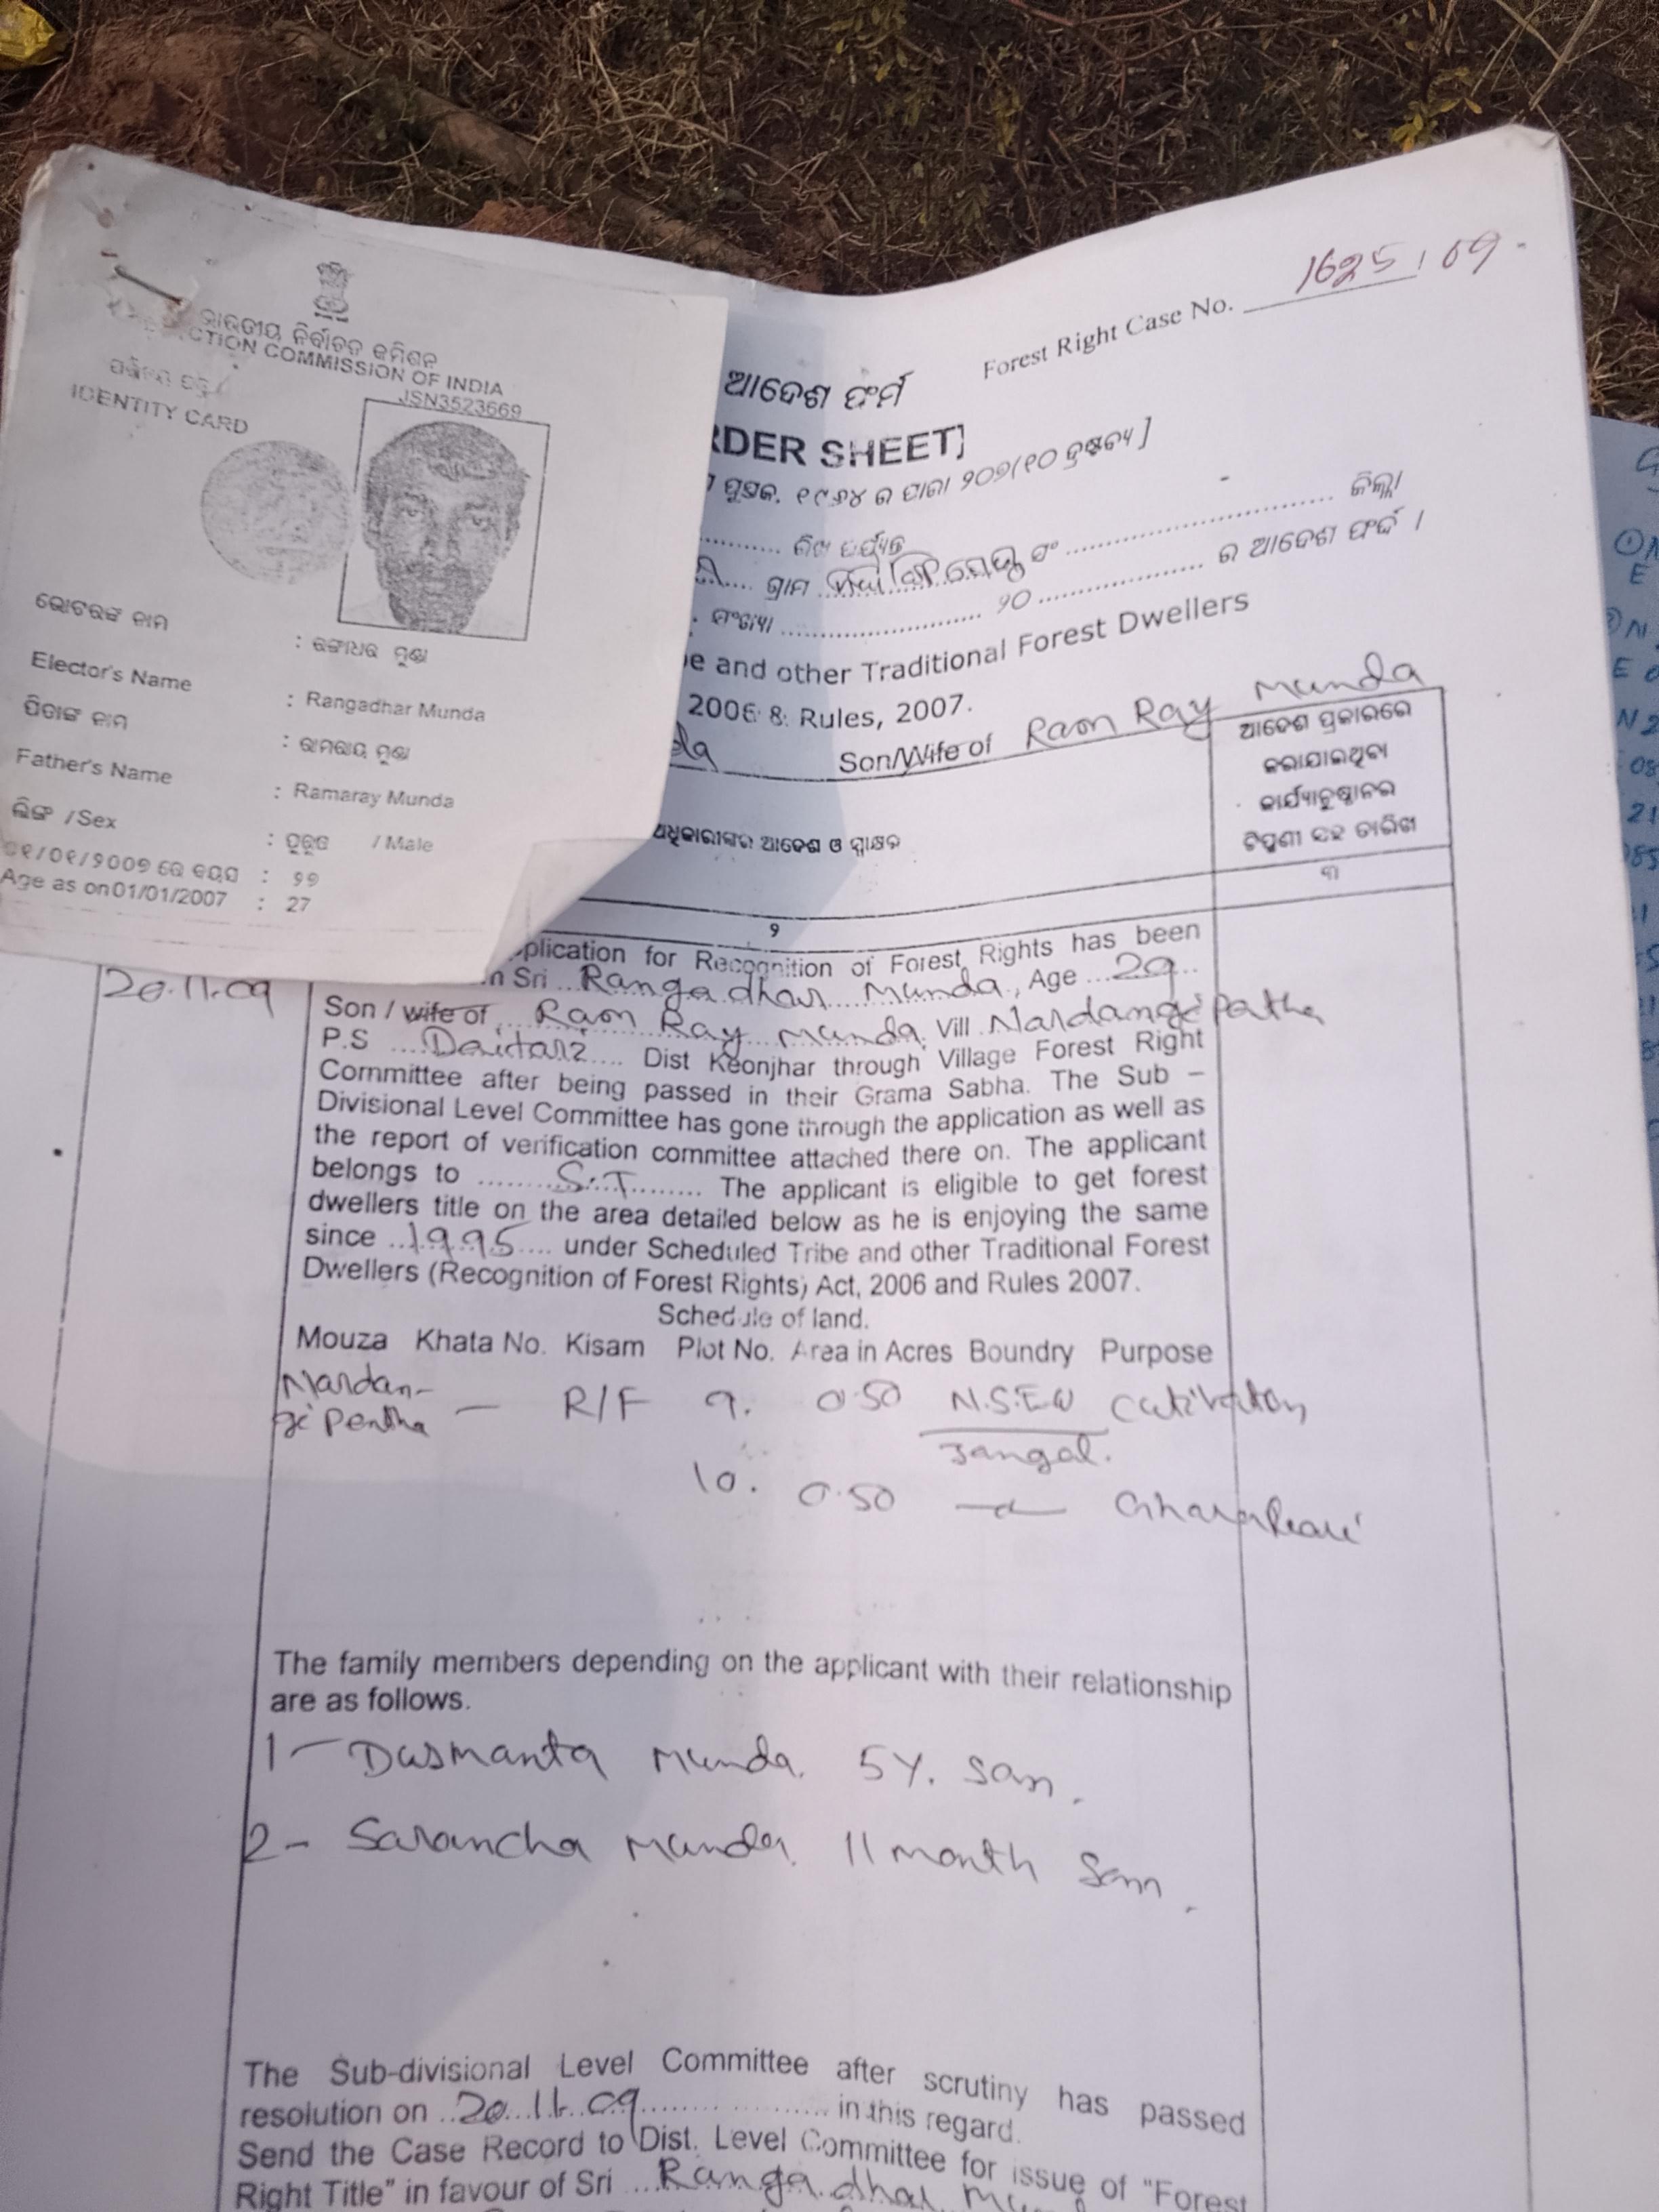 ଭାରତୀୟ ନିର୍ବାଚନ କମିଶନ
CTION COMMISSION OF INDIA
IDENTITY CARD
JSN3523669
ଭୋଟରଙ୍କ ନାମ : ରଙ୍ଗାଧର ମୁଣ୍ଡା
Elector's Name : Rangadhar Munda
ପିତାଙ୍କ ନାମ : ରାମରାୟ ମୁଣ୍ଡା
Father's Name : Ramaray Munda
ଲିଙ୍ଗ /Sex : ପୁରୁଷ / Male
୦୧/୦୧/୨୦୦୭ ରେ ବୟସ : ୨୭
Age as on 01/01/2007 : 27
Forest Right Case No. 1625/09
ଆଦେଶ ଫର୍ମ
RDER SHEET]
ଜିଲ୍ଲା
ଗ୍ରାମ
ସଂଖ୍ୟା ୨୦ ର ଆଦେଶ ଫର୍ଦ୍ଦ ।
be and other Traditional Forest Dwellers
2006 & Rules, 2007.
da Son/Wife of Ram Ray Munda
ଅଧିକାରୀଙ୍କର ଆଦେଶ ଓ ସ୍ୱାକ୍ଷର
ଆଦେଶ ପ୍ରକାରରେ
କରାଯାଇଥିବା
କାର୍ଯ୍ୟାନୁଷ୍ଠାନର
ଟିପ୍ପଣୀ ସହ ତାରିଖ
୨
୩
20.11.09
plication for Recognition of Forest Rights has been
m Sri Rangadhar Munda, Age 29
Son / wife of Ram Ray Munda, Vill Nardangipentha
P.S Daitari Dist Keonjhar through Village Forest Right
Committee after being passed in their Grama Sabha. The Sub –
Divisional Level Committee has gone through the application as well as
the report of verification committee attached there on. The applicant
belongs to S.T The applicant is eligible to get forest
dwellers title on the area detailed below as he is enjoying the same
since 1995 under Scheduled Tribe and other Traditional Forest
Dwellers (Recognition of Forest Rights) Act, 2006 and Rules 2007.
Schedule of land.
Mouza Khata No. Kisam Plot No. Area in Acres Boundry Purpose
Nardan- — R/F 9. 0.50 N.S.E.W Cultivation
gi pentha Jangal.
10. 0.50 Gharabari
The family members depending on the applicant with their relationship
are as follows.
1 – Dusmanta Munda. 5Y. Son.
2 - Sarancha Munda. 11 month Son.
The Sub-divisional Level Committee after scrutiny has passed
resolution on 20.11.09 in this regard.
Send the Case Record to Dist. Level Committee for issue of "Forest
Right Title" in favour of Sri Rangadhar